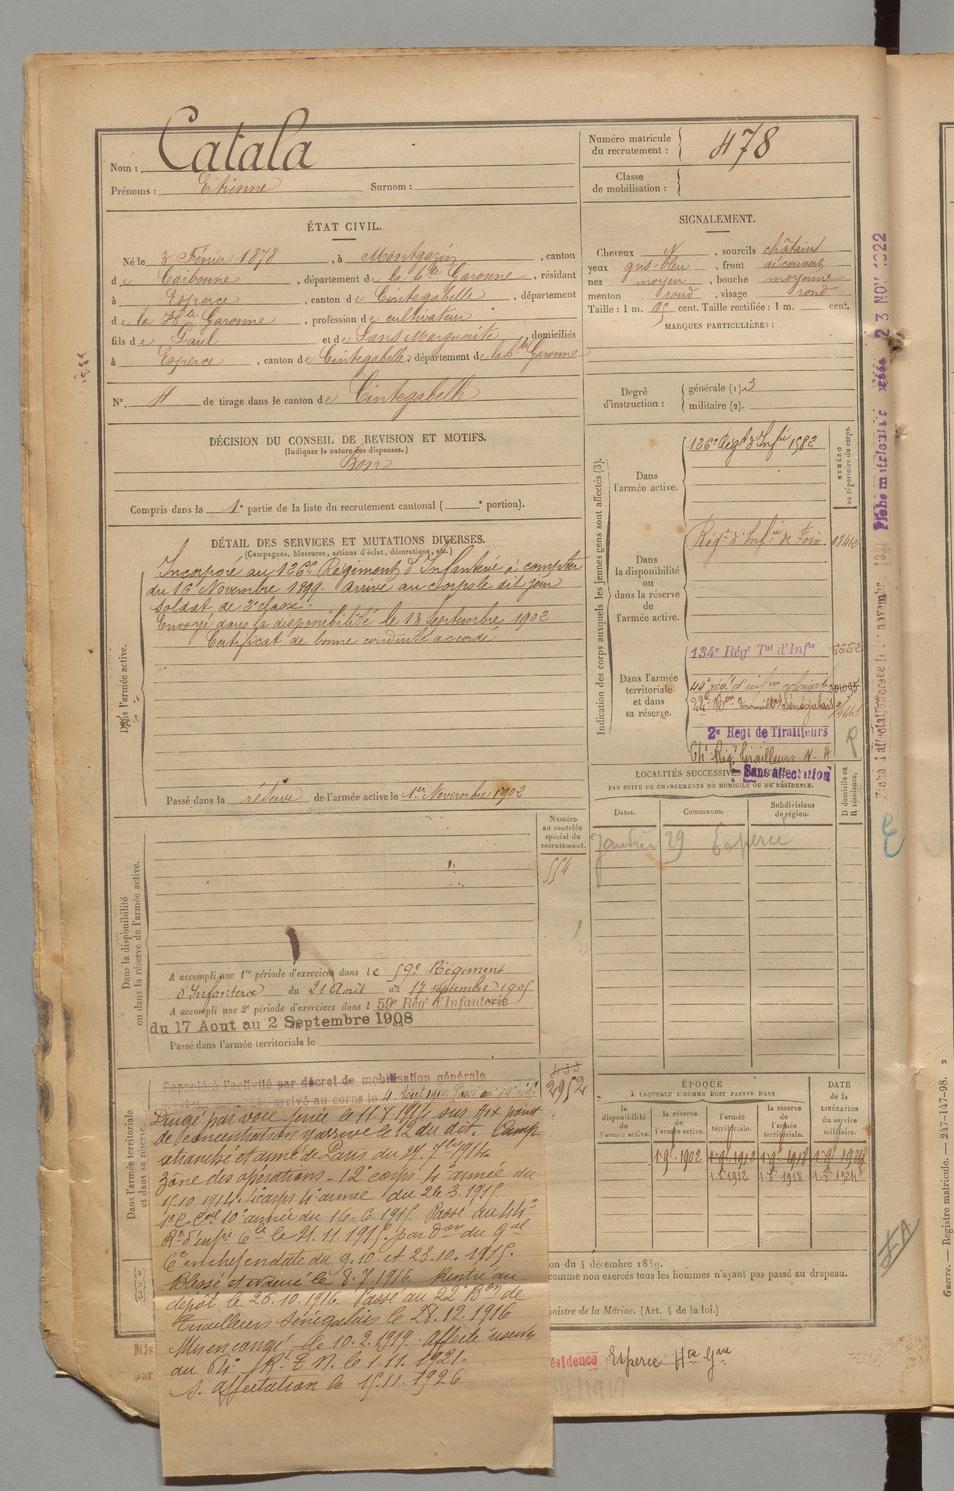 Nom : Catala
Prénoms : Etienne Surnom :
Numéro matricule du recrutement : 478
Classe de mobilisation :
ÉTAT CIVIL.
Né le 3 Février 1878, à Montgazin, canton
de Carbonne, département de la Hte Garonne, résidant
à Esperce, canton de Cintegabelle, département
de la Hte Garonne, profession de cultivateur
fils de Paul et de Sans Marguerite domiciliés
à Esperce, canton de Cintegabelle, département de la Hte Garonne
N° 4 de tirage dans le canton de Cintegabelle
SIGNALEMENT.
Cheveux N, sourcils châtains
yeux gris-bleu, front découvert
nez moyen, bouche moyenne
menton rond, visage rond
Taille : 1 m. cent. Taille rectifiée : 1 m. cent.
MARQUES PARTICULIÈRES :
Degré d'instruction : générale (1). 3
militaire (2).
DÉCISION DU CONSEIL DE REVISION ET MOTIFS.
(Indiquer la nature des dispenses.)
Bon
Compris dans la 1e partie de la liste du recrutement cantonal ( e portion).
DÉTAIL DES SERVICES ET MUTATIONS DIVERSES.
(Campagnes, blessures, actions d'éclat, décorations, etc.)
Dans l'armée active.
Incorporé au 126e Régiment d'Infanterie à compter
du 16 Novembre 1899. Arrivé au corps le dit jour
soldat de 2e classe.
Envoyé dans la disponibilité le 13 Septembre 1902
Certificat de bonne conduite accordé
Passé dans la réserve de l'armée active le 1er Novembre 1902
Indication des corps auxquels les jeunes gens sont affectés (3).
NUMÉRO au répertoire du corps.
Dans l'armée active.
126e Regt d'Infie 1582
Dans la disponibilité ou dans la réserve de l'armée active.
Régt d'Infie de Foix
Dans l'armée territoriale et dans sa réserve.
134e Régt Tal d'Infie
44e régt d'infie coloniale
22e Bon Tirailleurs Sénégalais
2e Regt de Tirailleurs
Régt Tirailleurs N. A
Sans affectation
LOCALITÉS SUCCESSIVES
PAR SUITE DE CHANGEMENTS DE DOMICILE OU DE RÉSIDENCE.
Dates. Communes. Subdivisions de région. D domicile ou R résidence.
Janvier 29 Esperce
Numéro au contrôle spécial du recrutement.
554
Dans la disponibilité ou dans la réserve de l'armée active.
A accompli une 1re période d'exercices dans le 59e Régiment
d'Infanterie du 21 Août au 17 septembre 1905
A accompli une 2e période d'exercices dans l 59e Régt d'Infanterie
du 17 Aout au 2 Septembre 1908
Passé dans l'armée territoriale le
2952
Dans l'armée territoriale et dans sa réserve.
Rappelé à l'activité par décret de mobilisation générale
arrivé au corps le 4 Aout 1914.
Dirigé par voie ferrée le 11.8.1914 sur point
de concentration y arrive le 12 du dit. Camp
retranché et armée de Paris du 7bre 1914.
Zone des opérations - 12e corps 4e armée du
15.10.1914. 4e armée du 26.3.1915.
10e armée du 16-6-1915. Passé au 44e
Rt d'infie Cle le 21.11.1915. par don du gal
Ct en chef en date du 9.10. et 23.10.1915.
Blessé et évacué le 8.7.1916 Rentré au
dépôt le 26.10.1916. Passé au 22 Bon de
Tirailleurs sénégalais le 28.12.1916
Mis en congé le 10.2.1919. Affecté réserve
au le 1.11.1921.
S. affectation le 15.11.1926
ÉPOQUE
À LAQUELLE L'HOMME DOIT PASSER DANS :
DATE DE LA LIBÉRATION du service militaire.
la disponibilité de l'armée active. la réserve de l'armée active. l'armée territoriale. la réserve de l'armée territoriale.
1-9bre 1902 1-9bre 1912 1-9bre 1918 1-9bre 1924
1.8.1912 1.8.1918 1.8.1924
on du 4 décembre 1889.
comme non exercés tous les hommes n'ayant pas passé au drapeau.
inistre de la Marine. (Art. 4 de la loi.)
ésidence Esperce Hte Gne
Guerre. — Registre matricule. — 247-147-98. 2